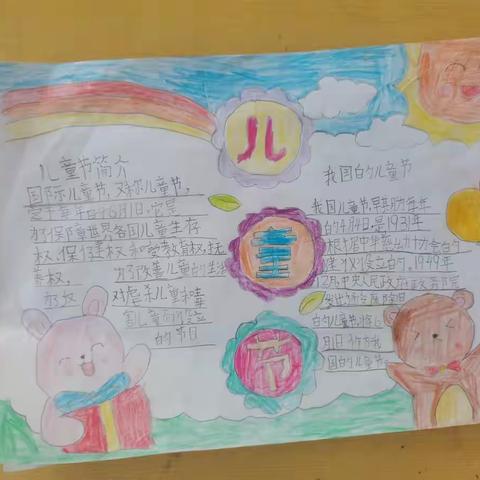 儿
童
节
儿童节简介
国际儿童节,又称儿童节,
定于每年的6月1日,它是
为了保障世界各国儿童生存
权、保健权和受教育权,抚
养权,为了改善儿童的生活
为反对虐杀儿童和毒
害儿童而设立
的节日
我国的儿童节
我国儿童节,早期为每年
的4月4日,是1931年
根据中华慈幼协会的
建议设立的。1949年
12月,中央人民政府政务院
发出
的儿童节,将6
月1日作为我
国的儿童节